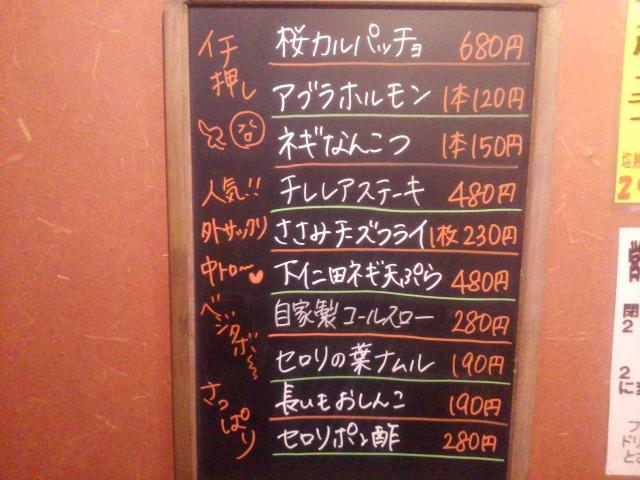 イチ押し
桜カルパッチョ 680円
アブラホルモン 1本120円
ネギなんこつ 1本150円
人気!! チレレアステーキ 480円
外サックリ ささみチーズフライ 1枚230円
中トロ〜 下仁田ネギ天ぷら 480円
ベジタボー
自家製コールスロー 280円
セロリの葉ナムル 190円
さっぱり
長いもおしんこ 190円
セロリポン酢 280円